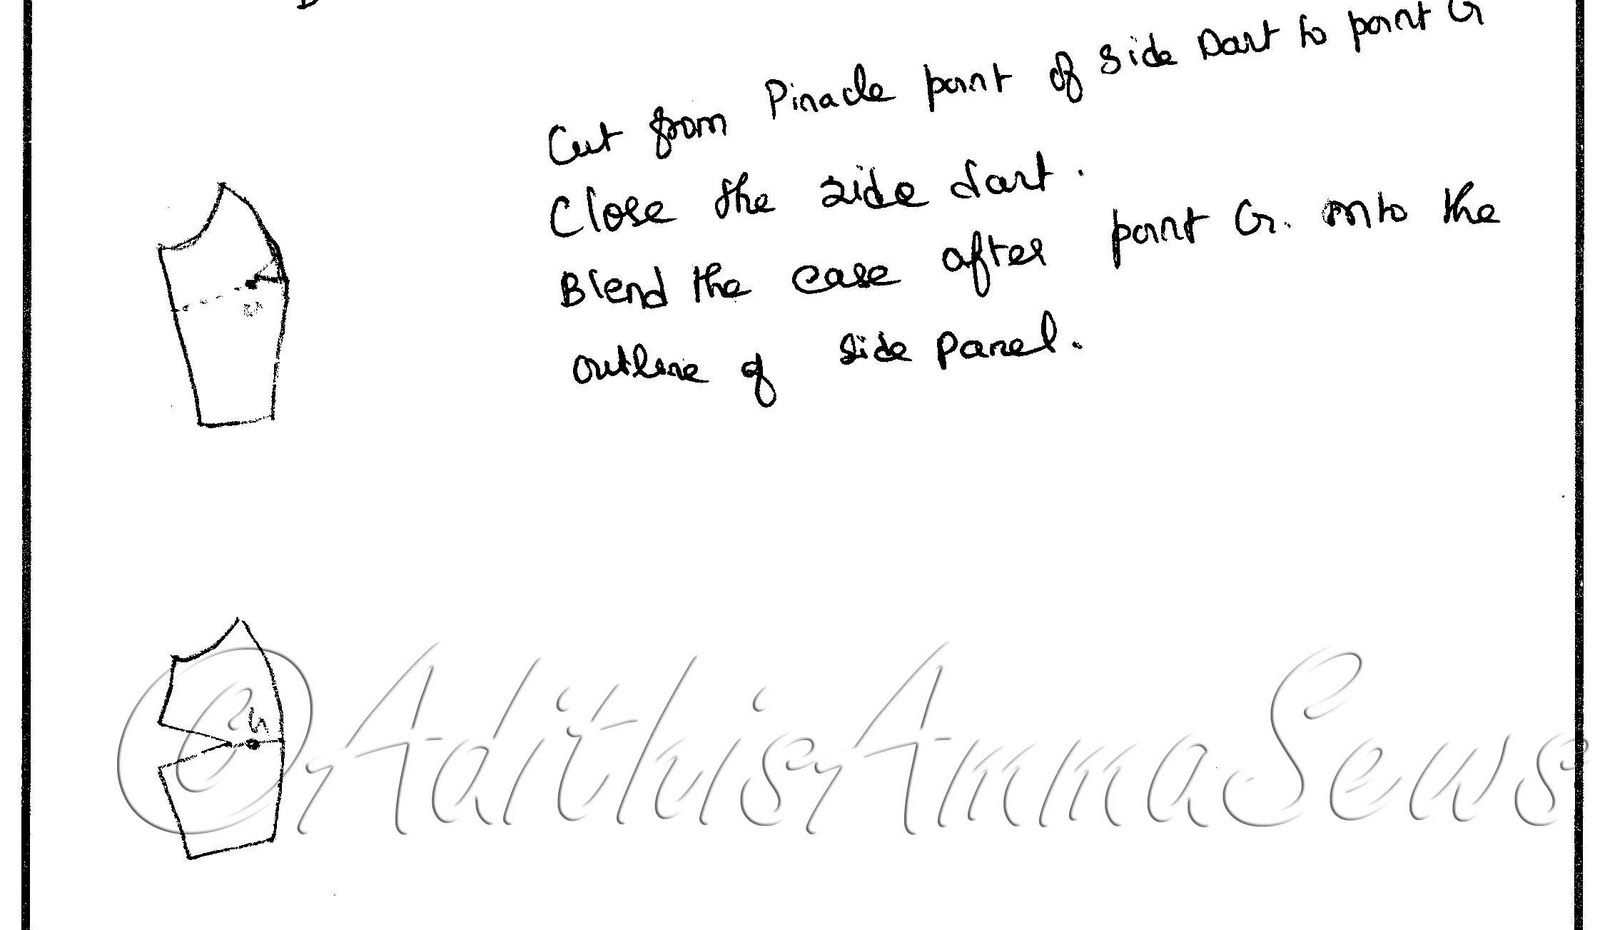 Cut from Pinacle point of side Dart to point G
Close the side dart.
Blend the ease after point G. onto the
outline of side panel.
G
©AdithisAmmaSews